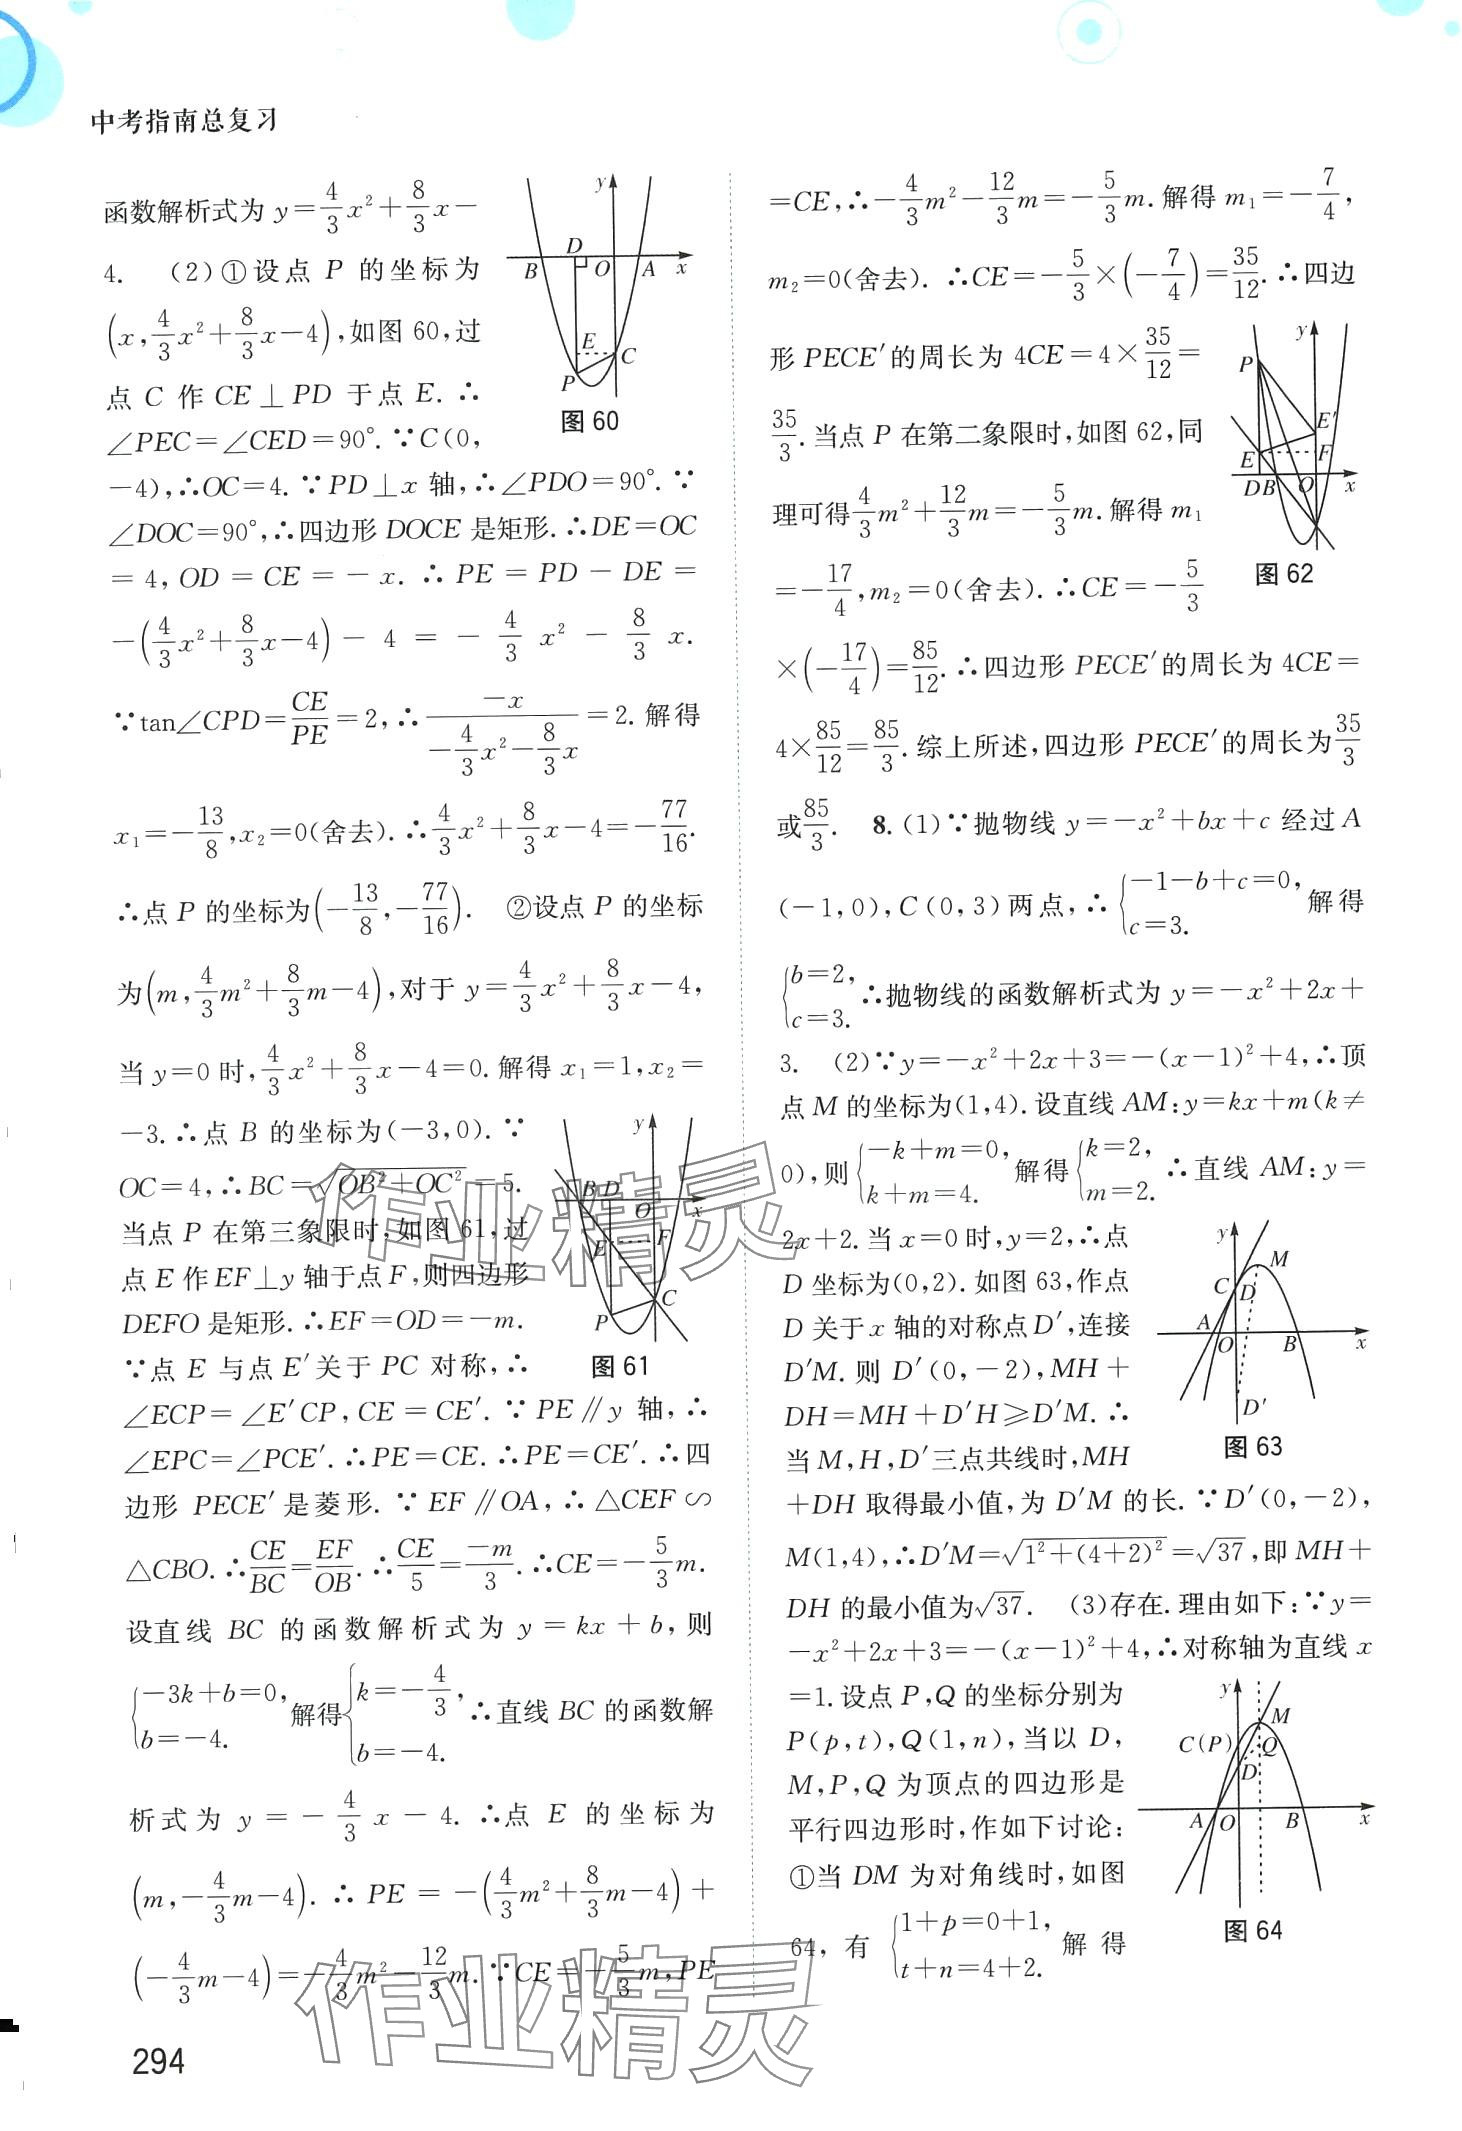 中考指南总复习
函数解析式为 y=4/3x²+8/3x-
4. (2)①设点 P 的坐标为
(x,4/3x²+8/3x-4),如图 60,过
点 C 作 CE⊥PD 于点 E. ∴
∠PEC=∠CED=90°. ∵C(0,
-4),∴OC=4. ∵PD⊥x 轴,∴∠PDO=90°. ∵
∠DOC=90°,∴四边形 DOCE 是矩形. ∴DE=OC
=4,OD=CE=-x. ∴PE=PD-DE=
-(4/3x²+8/3x-4)-4=-4/3x²-8/3x.
∵tan∠CPD=CE/PE=2,∴(-x)/(-4/3x²-8/3x)=2. 解得
x₁=-13/8,x₂=0(舍去). ∴4/3x²+8/3x-4=-77/16.
∴点 P 的坐标为(-13/8,-77/16). ②设点 P 的坐标
为(m,4/3m²+8/3m-4),对于 y=4/3x²+8/3x-4,
当 y=0 时,4/3x²+8/3x-4=0. 解得 x₁=1,x₂=
-3. ∴点 B 的坐标为(-3,0). ∵
OC=4,∴BC=√(OB²+OC²)=5.
当点 P 在第三象限时,如图 61,过
点 E 作 EF⊥y 轴于点 F,则四边形
DEFO 是矩形. ∴EF=OD=-m.
∵点 E 与点 E′关于 PC 对称,∴
∠ECP=∠E′CP,CE=CE′. ∵PE∥y 轴,∴
∠EPC=∠PCE′. ∴PE=CE. ∴PE=CE′. ∴四
边形 PECE′是菱形. ∵EF∥OA,∴△CEF∽
△CBO. ∴CE/BC=EF/OB. ∴CE/5=-m/3. ∴CE=-5/3m.
设直线 BC 的函数解析式为 y=kx+b,则
{-3k+b=0, b=-4. 解得{k=-4/3, b=-4. ∴直线 BC 的函数解
析式为 y=-4/3x-4. ∴点 E 的坐标为
(m,-4/3m-4). ∴PE=-(4/3m²+8/3m-4)+
(-4/3m-4)=-4/3m²-12/3m. ∵CE=-5/3m,PE
y
D
B
O
A
x
E
C
P
图 60
y
B
D
O
x
E
F
C
P
图 61
=CE,∴-4/3m²-12/3m=-5/3m. 解得 m₁=-7/4,
m₂=0(舍去). ∴CE=-5/3×(-7/4)=35/12. ∴四边
形 PECE′的周长为 4CE=4×35/12=
35/3. 当点 P 在第二象限时,如图 62,同
理可得4/3m²+12/3m=-5/3m. 解得 m₁
=-17/4,m₂=0(舍去). ∴CE=-5/3
×(-17/4)=85/12. ∴四边形 PECE′的周长为 4CE=
4×85/12=85/3. 综上所述,四边形 PECE′的周长为35/3
或85/3. 8. (1)∵抛物线 y=-x²+bx+c 经过 A
(-1,0),C(0,3)两点,∴{-1-b+c=0, c=3. 解得
{b=2, c=3. ∴抛物线的函数解析式为 y=-x²+2x+
3. (2)∵y=-x²+2x+3=-(x-1)²+4,∴顶
点 M 的坐标为(1,4). 设直线 AM:y=kx+m(k≠
0),则{-k+m=0, k+m=4. 解得{k=2, m=2. ∴直线 AM:y=
2x+2. 当 x=0 时,y=2,∴点
D 坐标为(0,2). 如图 63,作点
D 关于 x 轴的对称点 D′,连接
D′M. 则 D′(0,-2),MH+
DH=MH+D′H≥D′M. ∴
当 M,H,D′三点共线时,MH
+DH 取得最小值,为 D′M 的长. ∵D′(0,-2),
M(1,4),∴D′M=√(1²+(4+2)²)=√37,即 MH+
DH 的最小值为√37. (3)存在. 理由如下:∵y=
-x²+2x+3=-(x-1)²+4,∴对称轴为直线 x
=1. 设点 P,Q 的坐标分别为
P(p,t),Q(1,n),当以 D,
M,P,Q 为顶点的四边形是
平行四边形时,作如下讨论:
①当 DM 为对角线时,如图
64,有{1+p=0+1, t+n=4+2. 解得
y
P
E′
E
F
D
B
O
x
图 62
y
M
C
D
A
O
B
x
D′
图 63
y
M
C(P)
Q
D
A
O
B
x
图 64
作业精灵
作业精灵
294